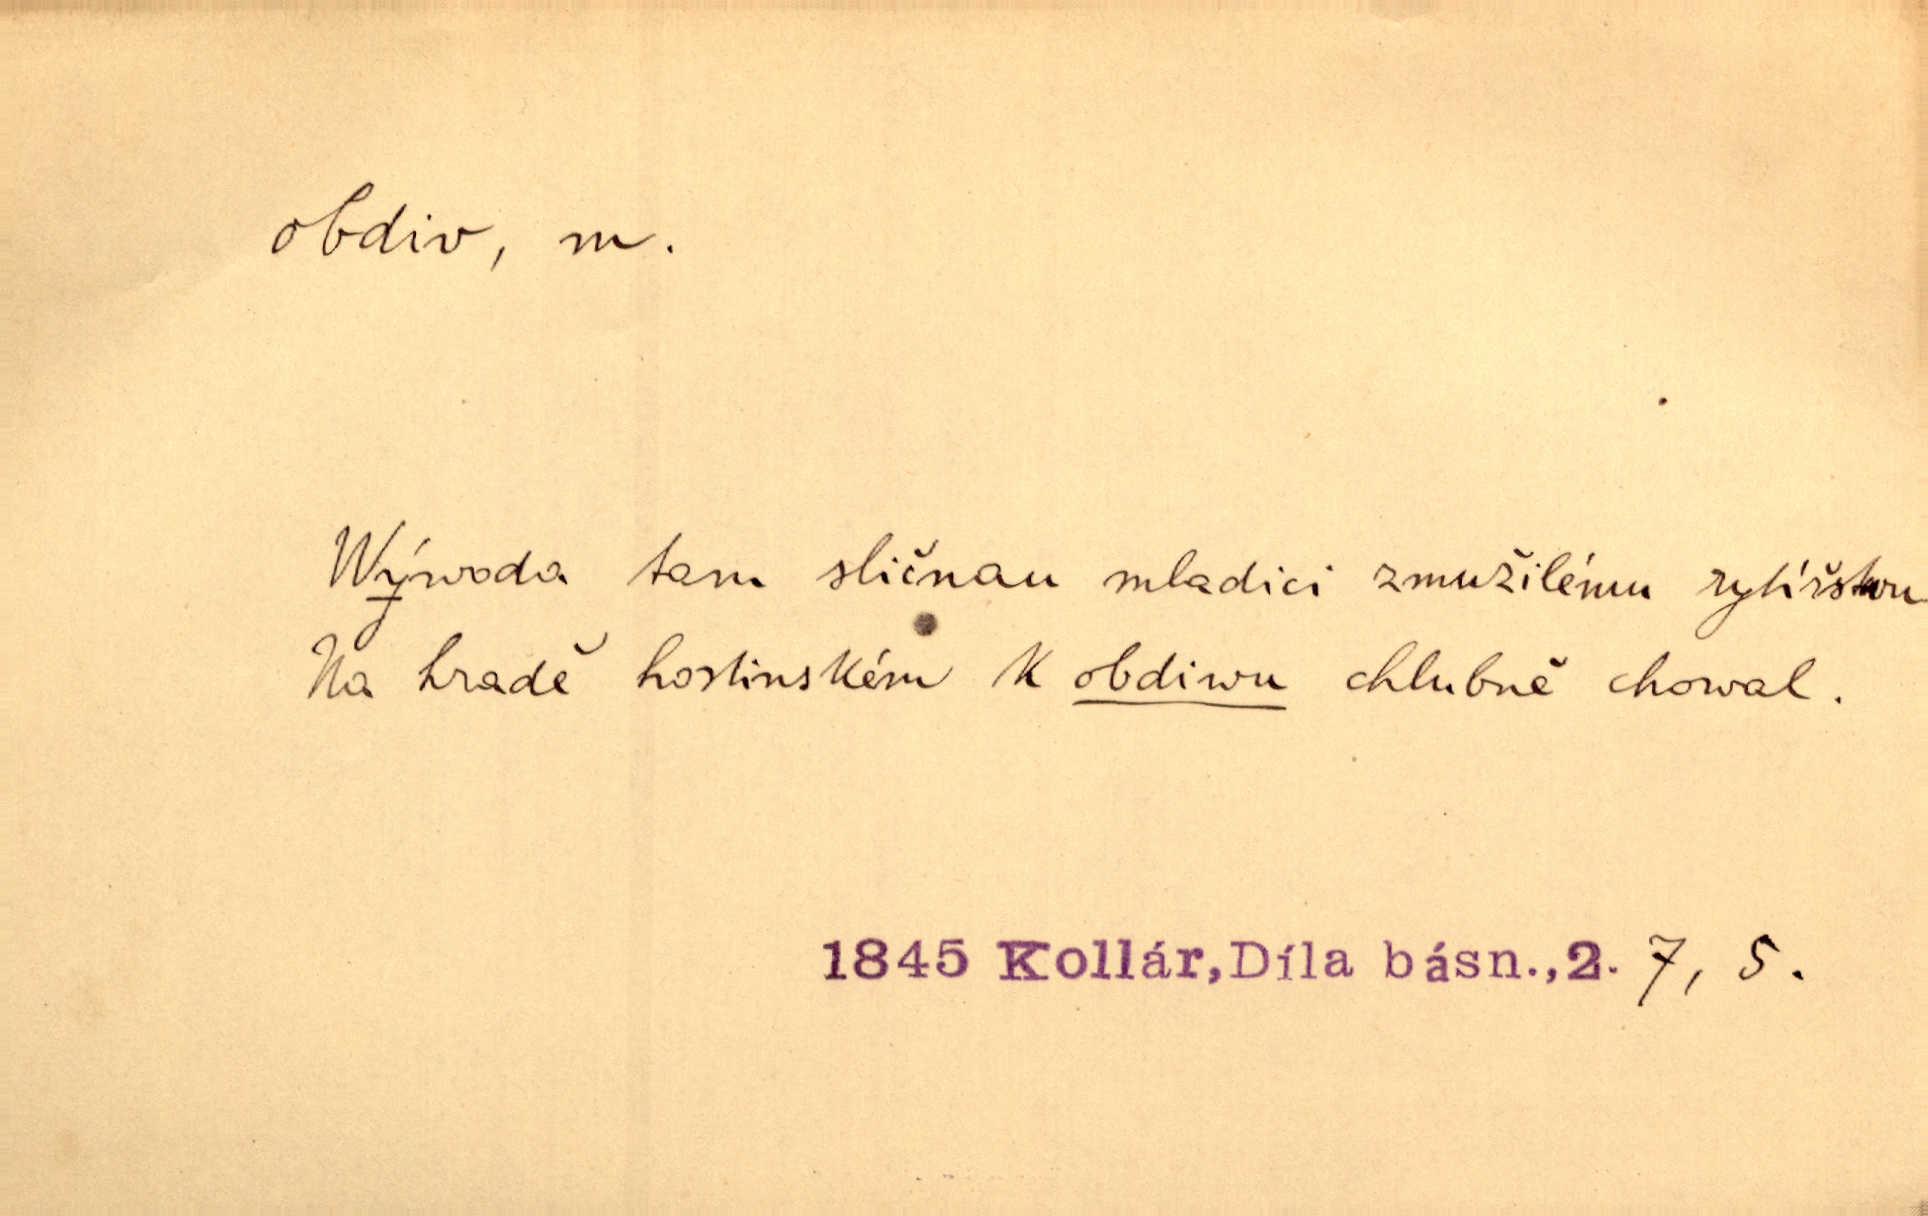 obdiv, m.
Wýwoda tam sličnau mladici zmužilému rytířstwu
Na hradě hostinském k obdiwu chlubně chowal.
1845 Kollár, Díla básn., 2. 7, 5.